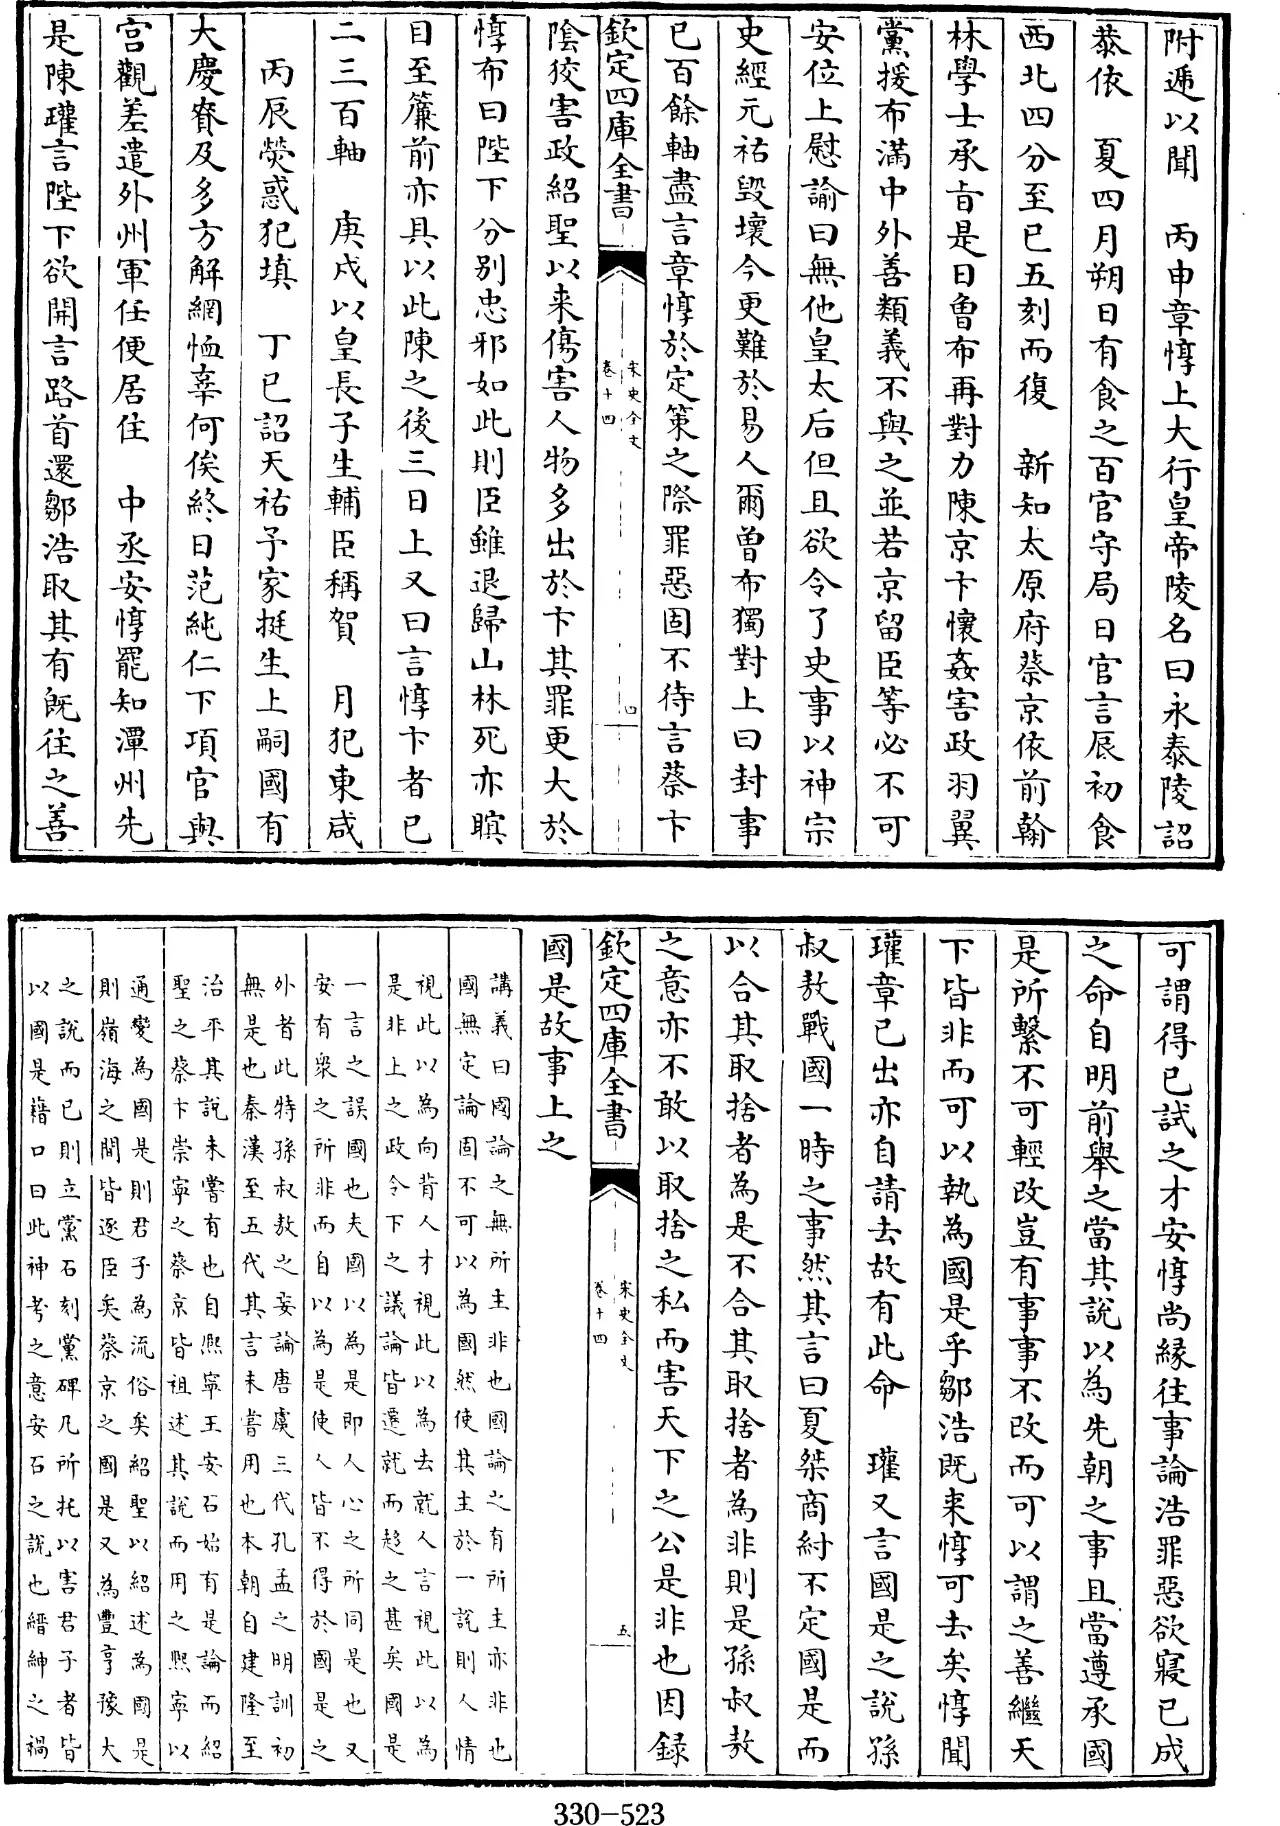 附遞以聞　丙申章惇上大行皇帝陵名曰永泰陵詔
恭依　夏四月朔日有食之百官守局日官言辰初食
西北四分至巳五刻而復　新知太原府蔡京依前翰
林學士承旨是日曾布再對力陳京卞懷姦害政羽翼
黨援布滿中外善類義不與之並若京留臣等必不可
安位上慰諭曰無他皇太后但且欲令了史事以神宗
史經元祐毀壞今更難於易人爾曾布獨對上曰封事
已百餘軸盡言章惇於定策之際罪惡固不待言蔡卞
欽定四庫全書
宋史全文
卷十四
四
陰狡害政紹聖以来傷害人物多出於卞其罪更大於
惇布曰陛下分別忠邪如此則臣雖退歸山林死亦瞑
目至簾前亦具以此陳之後三日上又曰言惇卞者已
二三百軸　庚戌以皇長子生輔臣稱賀　月犯東咸
丙辰熒惑犯填　丁巳詔天祐予家挺生上嗣國有
大慶賚及多方解網恤辜何俟終日范純仁下項官與
宮觀差遣外州軍任便居住　中丞安惇罷知潭州先
是陳瓘言陛下欲開言路首還鄒浩取其有既往之善
可謂得已試之才安惇尚縁往事論浩罪惡欲寢已成
之命自明前舉之當其說以為先朝之事且當遵承國
是所繫不可輕改豈有事事不改而可以謂之善繼天
下皆非而可以執為國是乎鄒浩既来惇可去矣惇聞
瓘章已出亦自請去故有此命　瓘又言國是之說孫
叔敖戰國一時之事然其言曰夏桀商紂不定國是而
以合其取捨者為是不合其取捨者為非則是孫叔敖
之意亦不敢以取捨之私而害天下之公是非也因録
欽定四庫全書
宋史全文
卷十四
五
國是故事上之
講義曰國論之無所主非也國論之有所主亦非也
國無定論固不可以為國然使其主於一說則人情
視此以為向背人才視此以為去就人言視此以為
是非上之政令下之議論皆遷就而趍之甚矣國是
一言之誤國也夫國以為是即人心之所同是也又
安有衆之所非而自以為是使人皆不得於國是之
外者此特孫叔敖之妄論唐虞三代孔孟之明訓初
無是也秦漢至五代其言未嘗用也本朝自建隆至
治平其說未嘗有也自熈寧王安石始有是論而紹
聖之蔡卞崇寧之蔡京皆祖述其說而用之熈寧以
通變為國是則君子為流俗矣紹聖以紹述為國是
則嶺海之間皆逐臣矣蔡京之國是又為豐亨豫大
之說而已則立黨石刻黨碑凡所托以害君子者皆
以國是藉口曰此神考之意安石之說也縉紳之禍
330-523